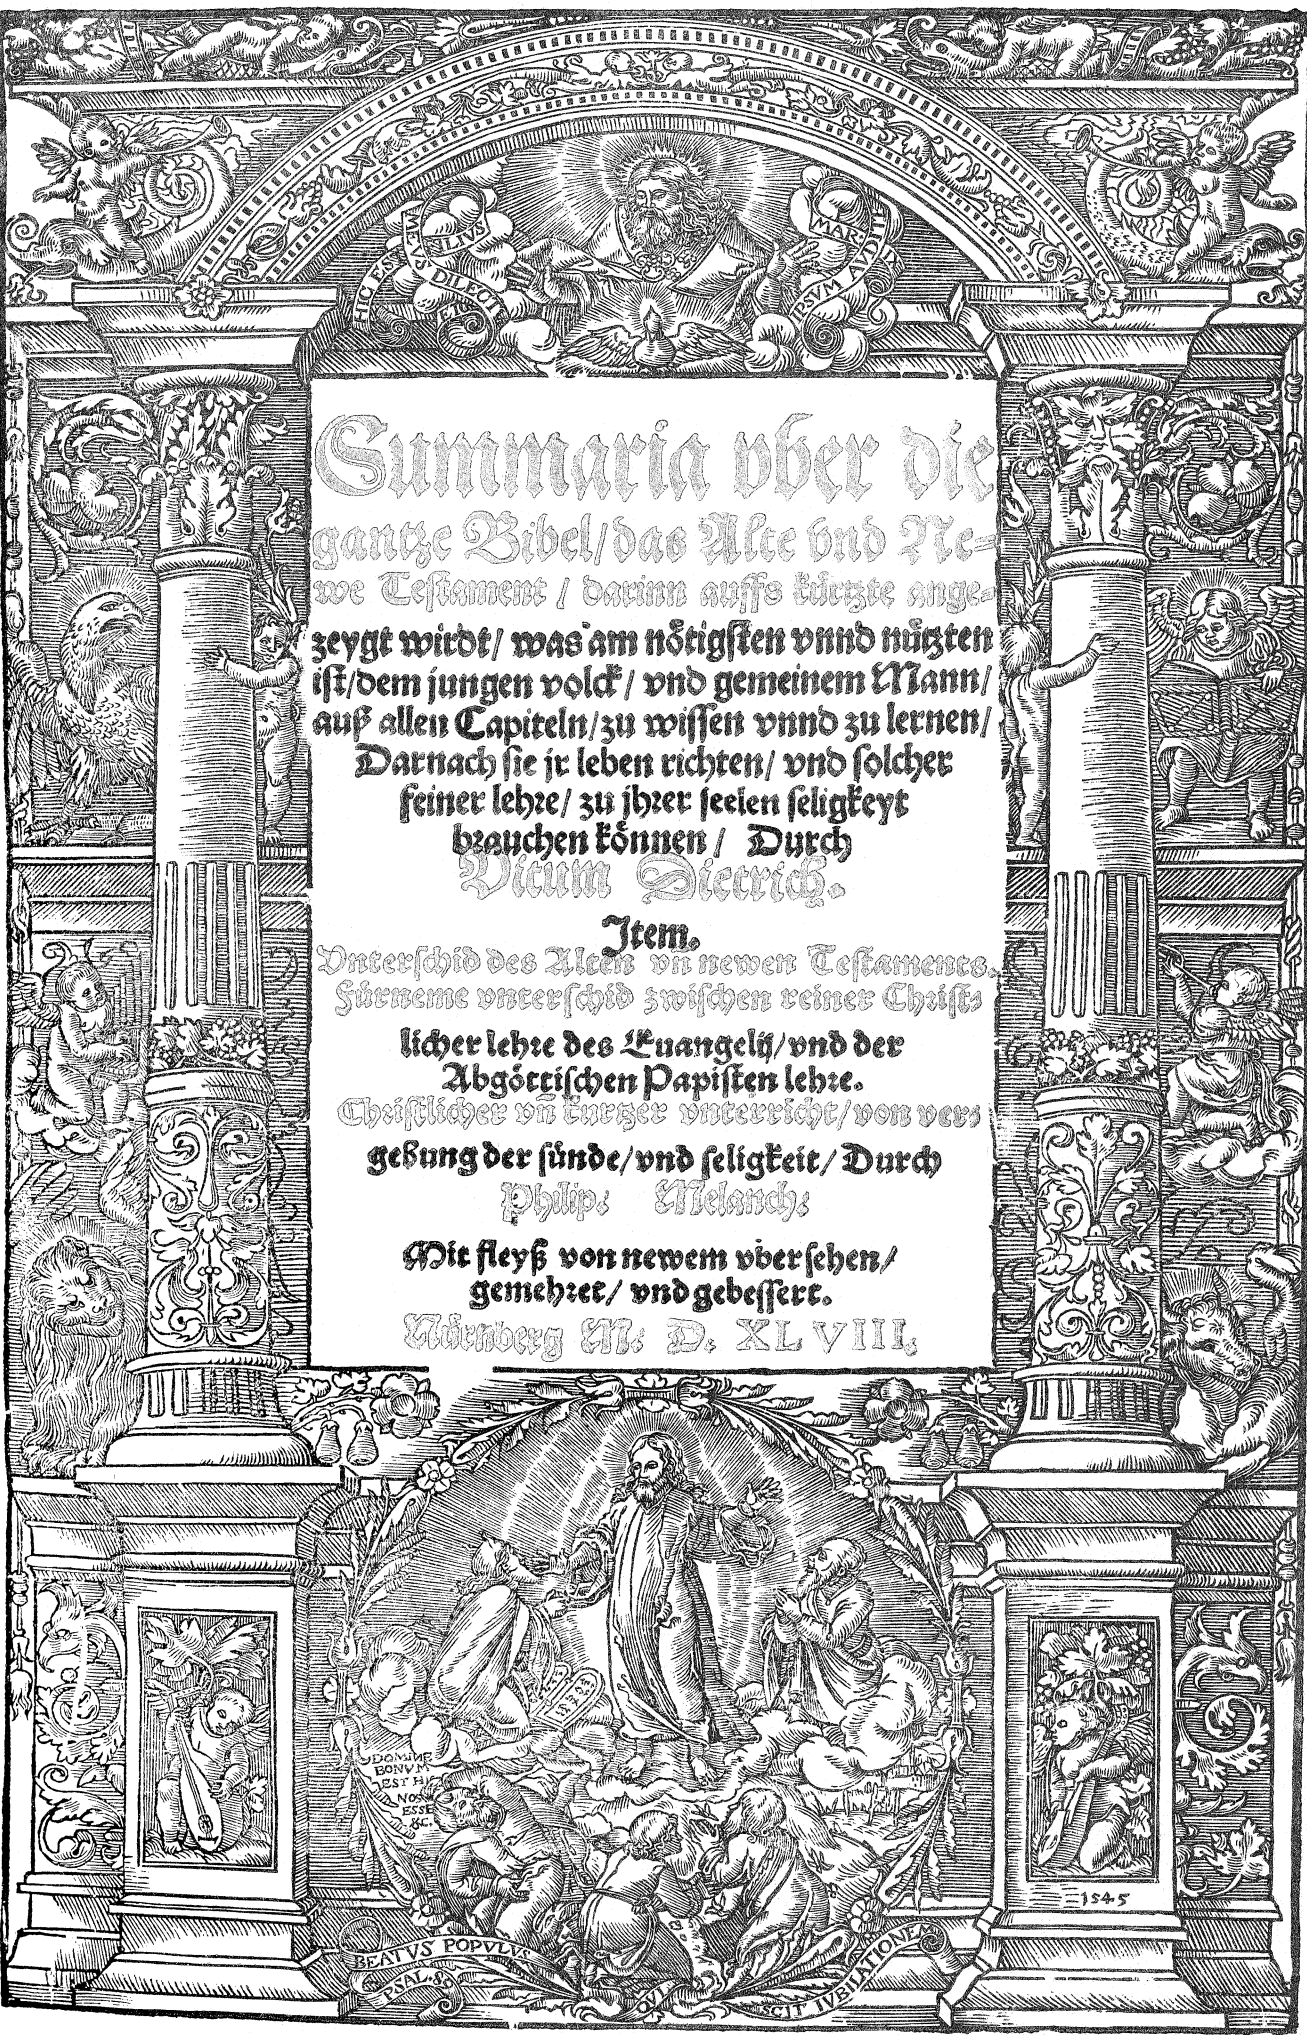 HIC EST FILIVS
MEVS DILECT
ETC
MAR:
IPSVM AVDITE
Summaria vber die
gantze Bibel/das Alte vnd Ne-
we Testament / darinn auffs kürtzte ange-
zeygt wirdt/ was am nötigsten vnnd nützten
ist/dem jungen volck/ vnd gemeinem Mann/
auß allen Capiteln/zu wissen vnnd zu lernen/
Darnach sie jr leben richten/ vnd solcher
feiner lehre/ zu jhrer seelen seligkeyt
brauchen können / Durch
Vitum Dietrich.
Item.
Vnterschid des Alten vñ newen Testaments.
Fürneme vnterschid zwischen reiner Christ-
licher lehre des Euangelij/vnd der
Abgöttischen Papisten lehre.
Christlicher vñ kurtzer vnterricht/von ver-
gebung der sünde/vnd seligkeit/ Durch
Philip: Melanch:
Mit fleyß von newem vbersehen/
gemehret/ vnd gebessert.
Nürnberg M. D. XLVIII.
DOMINE
BONVM
EST HI
NOS
ESSE
&c.
1545
BEATVS POPVLVS
QVI
SCIT IVBILATIONEM
PSAL. 89